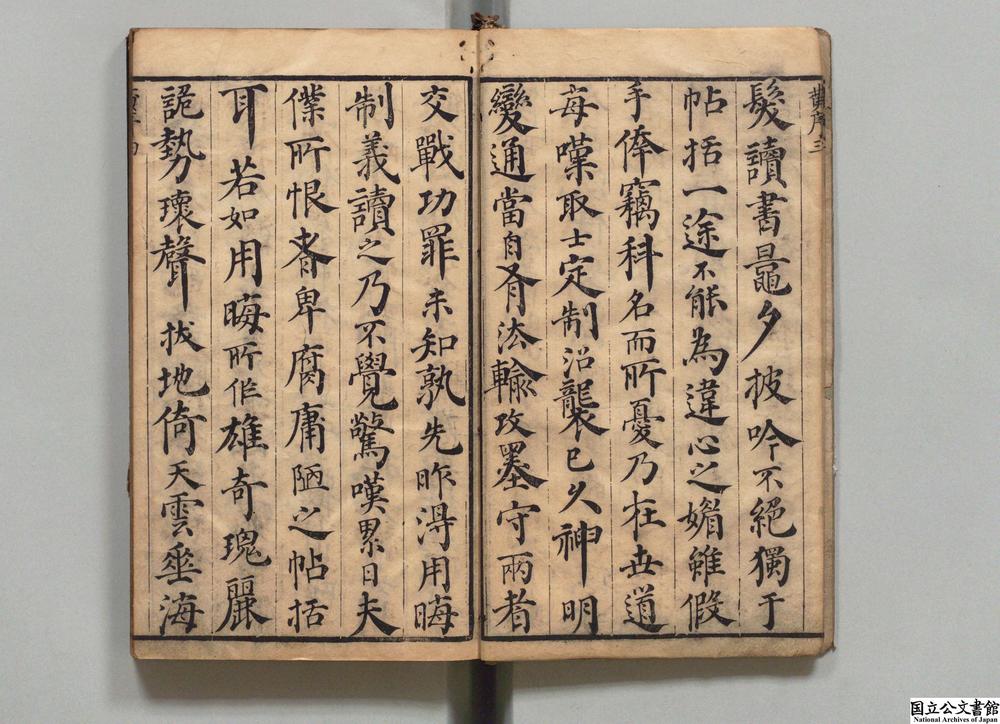 髮讀書鼂夕披吟不絕獨于
帖括一途不能為違心之媚雖假
手倖竊科名而所憂乃在世道
每嘆取士定制沿襲已久神明
變通當自有法輸攻墨守兩者
交戰功罪未知孰先昨淂用晦
制義讀之乃不覺驚嘆累日夫
僕所恨者卑腐庸陋之帖括
耳若如用晦所作雄奇瑰麗
詭勢瓌聲拔地倚天雲垂海
黃序三
国立公文書館
National Archives of Japan